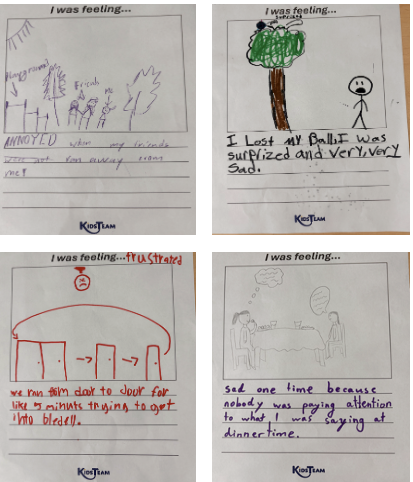 I was feeling...
Playground
Friends
me
ANNOYED when my friends
were not ran away from
me!
KIDSTEAM
I was feeling...
surprised
I Lost MY Ball,I was
surprized and very,very
Sad.
KIDSTEAM
I was feeling...frustrated
we ran from door to door for
like 5 minuts trying to get
into bledell.
KIDSTEAM
I was feeling...
sad one time because
nobody was paying attention
to what I was saying at
dinnertime.
KIDSTEAM